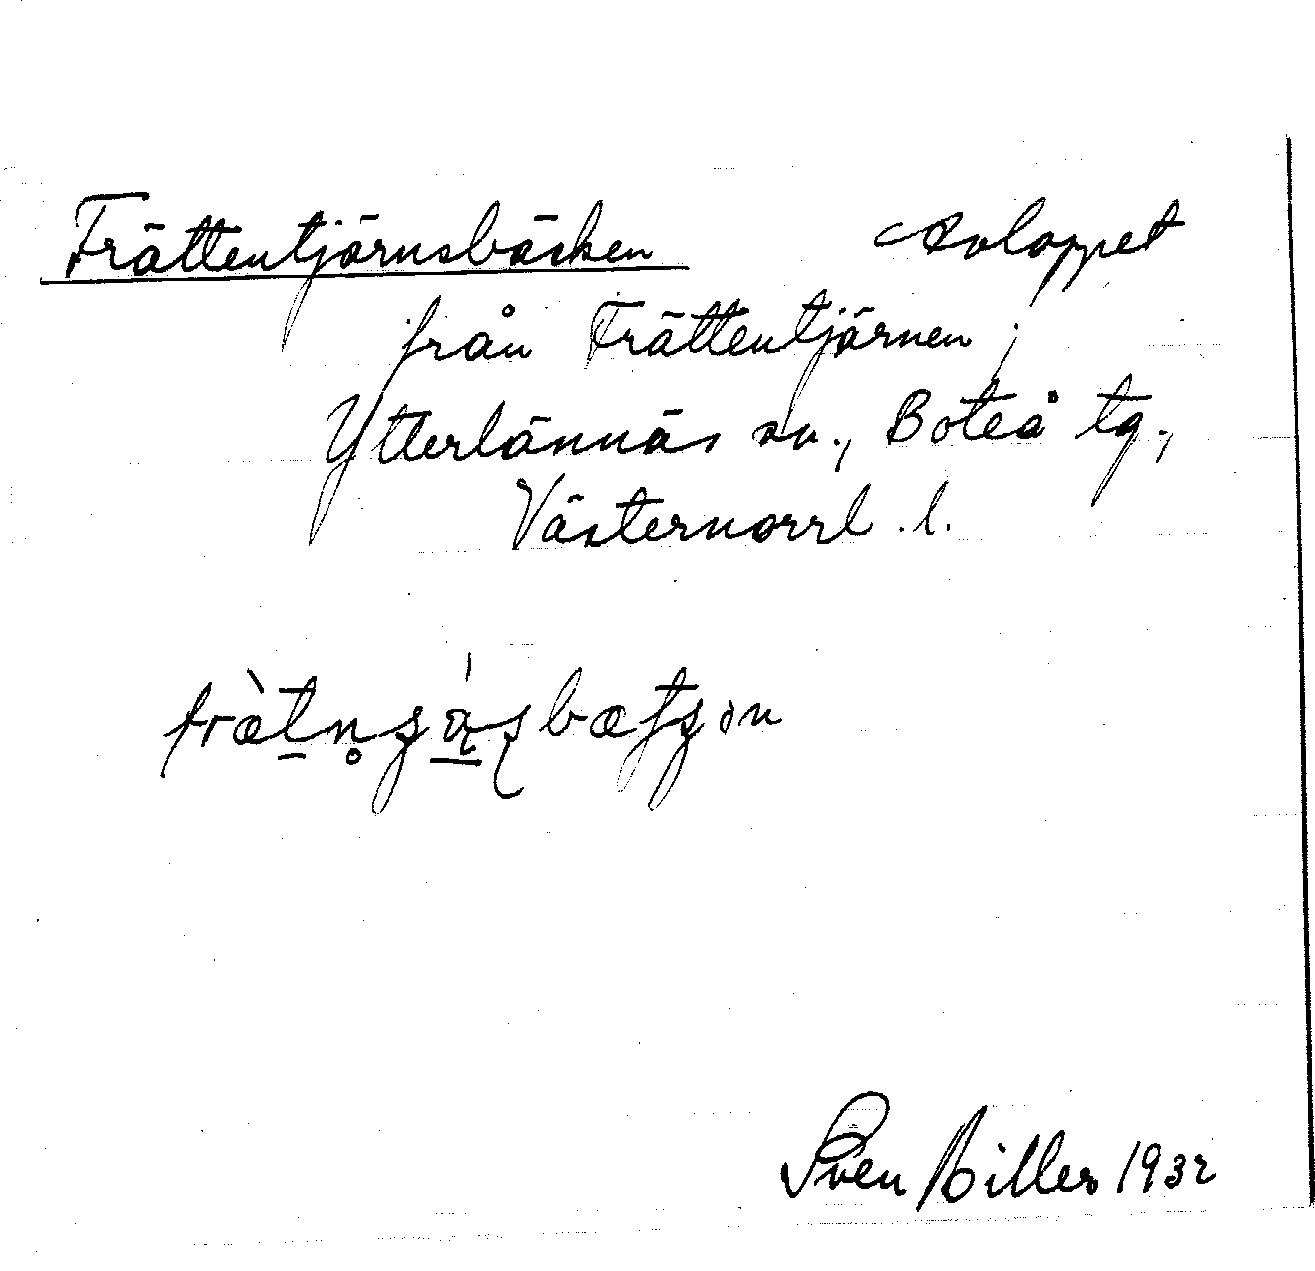 Frättentjärnsbäcken Avloppet
från Frättentjärnen;
Ytterlännäs sn., Boteå tg.,
Västernorrl. l.
Sven Biller 1932